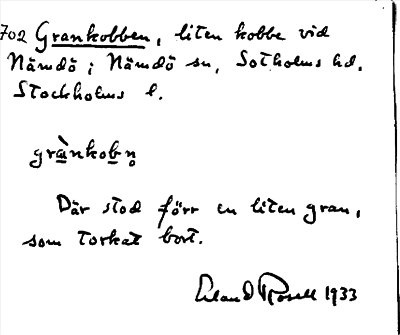 702 Grankobben, liten kobbe vid
Nämdö i Nämdö sn, Sotholms hd.
Stockholms l.
grànkobn̥
Där stod förr en liten gran,
som torkat bort.
Erland Rosell 1933